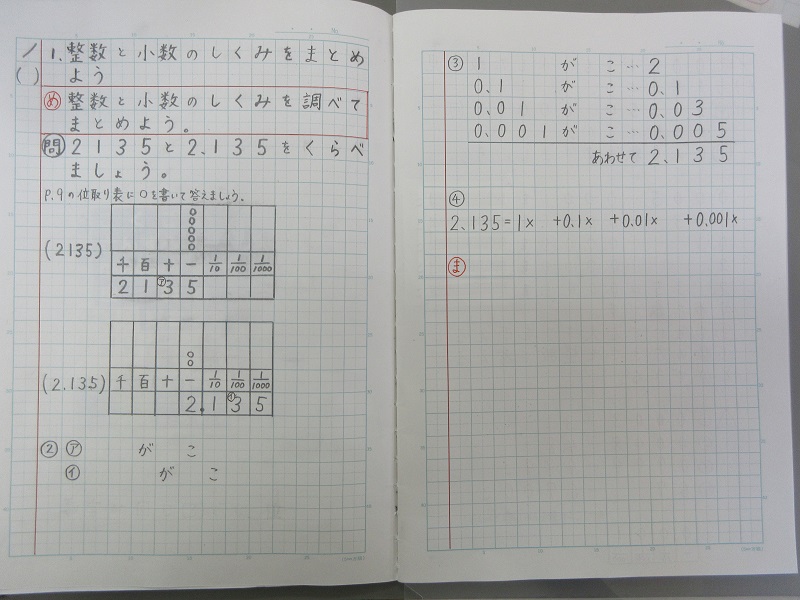 ／
(　)
1. 整数と小数のしくみをまとめ
よう
め 整数と小数のしくみを調べて
まとめよう。
問 2135と2.135をくらべ
ましょう。
P.9の位取り表に○を書いて答えましょう。
(2135)
千 百 十 一 1/10 1/100 1/1000
2 1 ㋐3 5
(2.135)
千 百 十 一 1/10 1/100 1/1000
2.1 ㋑3 5
② ㋐ が こ
㋑ が こ
③ 1 が こ…2
0.1 が こ…0.1
0.01 が こ…0.03
0.001が こ…0.005
あわせて 2.135
④
2.135=1× +0.1× +0.01× +0.001×
ま